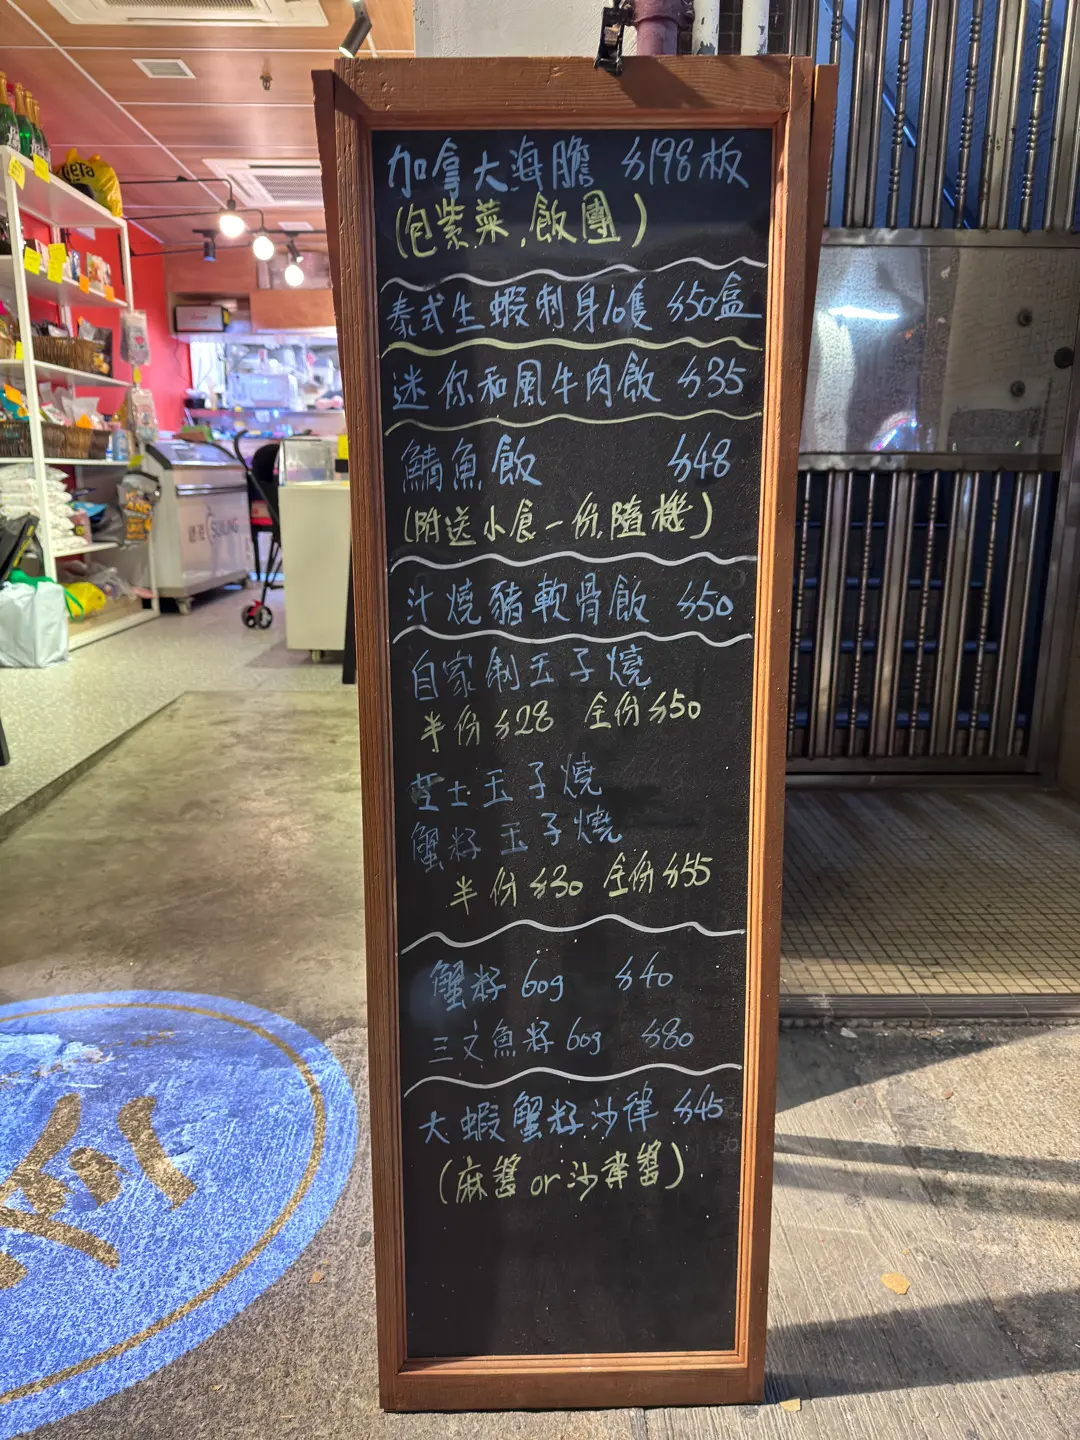 加拿大海膽 $198板
(包紫菜,飯團)
泰式生蝦刺身10隻 $50盒
迷你和風牛肉飯 $35
鯖魚飯 $48
(附送小食一份,隨機)
汁燒豬軟骨飯 $50
自家制玉子燒
半份$28 全份$50
芝士玉子燒
蟹籽玉子燒
半份$30 全份$55
蟹籽 60g $40
三文魚籽 60g $80
大蝦蟹籽沙律 $45
(麻醬 or 沙律醬)